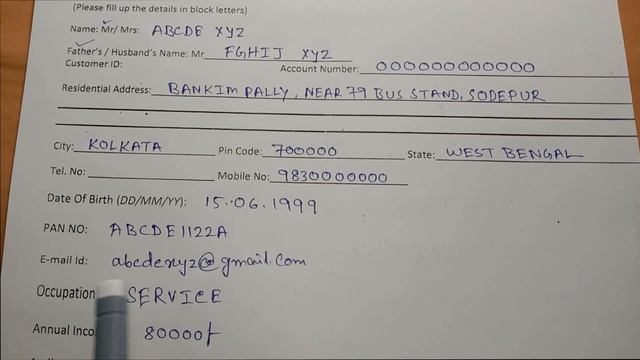 (Please fill up the details in block letters)
Name: Mr/ Mrs: ABCDE XYZ
Father's / Husband's Name: Mr FGHIJ XYZ
Customer ID: Account Number: 000000000000
Residential Address: BANKIM PALLY, NEAR 79 BUS STAND, SODEPUR
City: KOLKATA Pin Code: 700000 State: WEST BENGAL
Tel. No: Mobile No: 9830000000
Date Of Birth (DD/MM/YY): 15.06.1999
PAN NO: ABCDE1122A
E-mail Id: abcdexyz@gmail.com
Occupation SERVICE
Annual Inco 80000/-